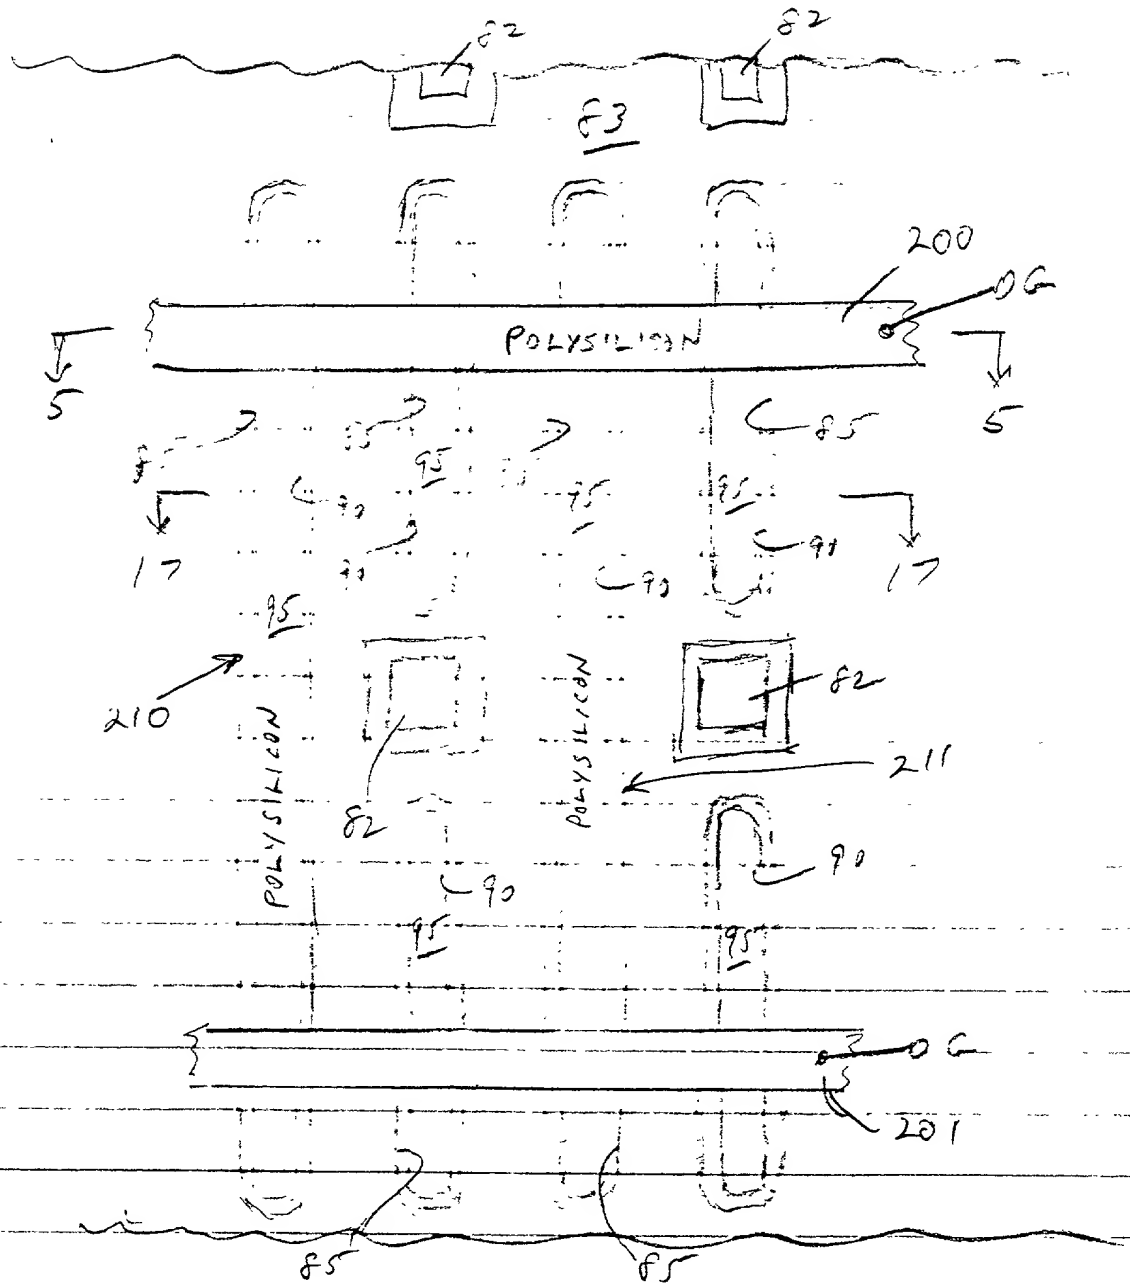 82 82
83
200
DG
POLYSILICON
5 5
85 85
95
95 95
90
90 90
17 17
90
95
82
210
POLYSILICON
POLYSILICON
211
82
90
90
95 95
DG
201
85 85